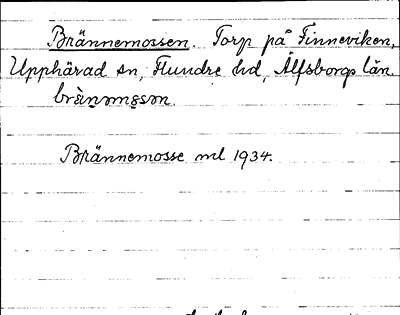 Brännemossen. Torp på Finneviken,
Upphärad sn, Flundre hd, Älfsborgs län.
Brännemosse ml 1934.